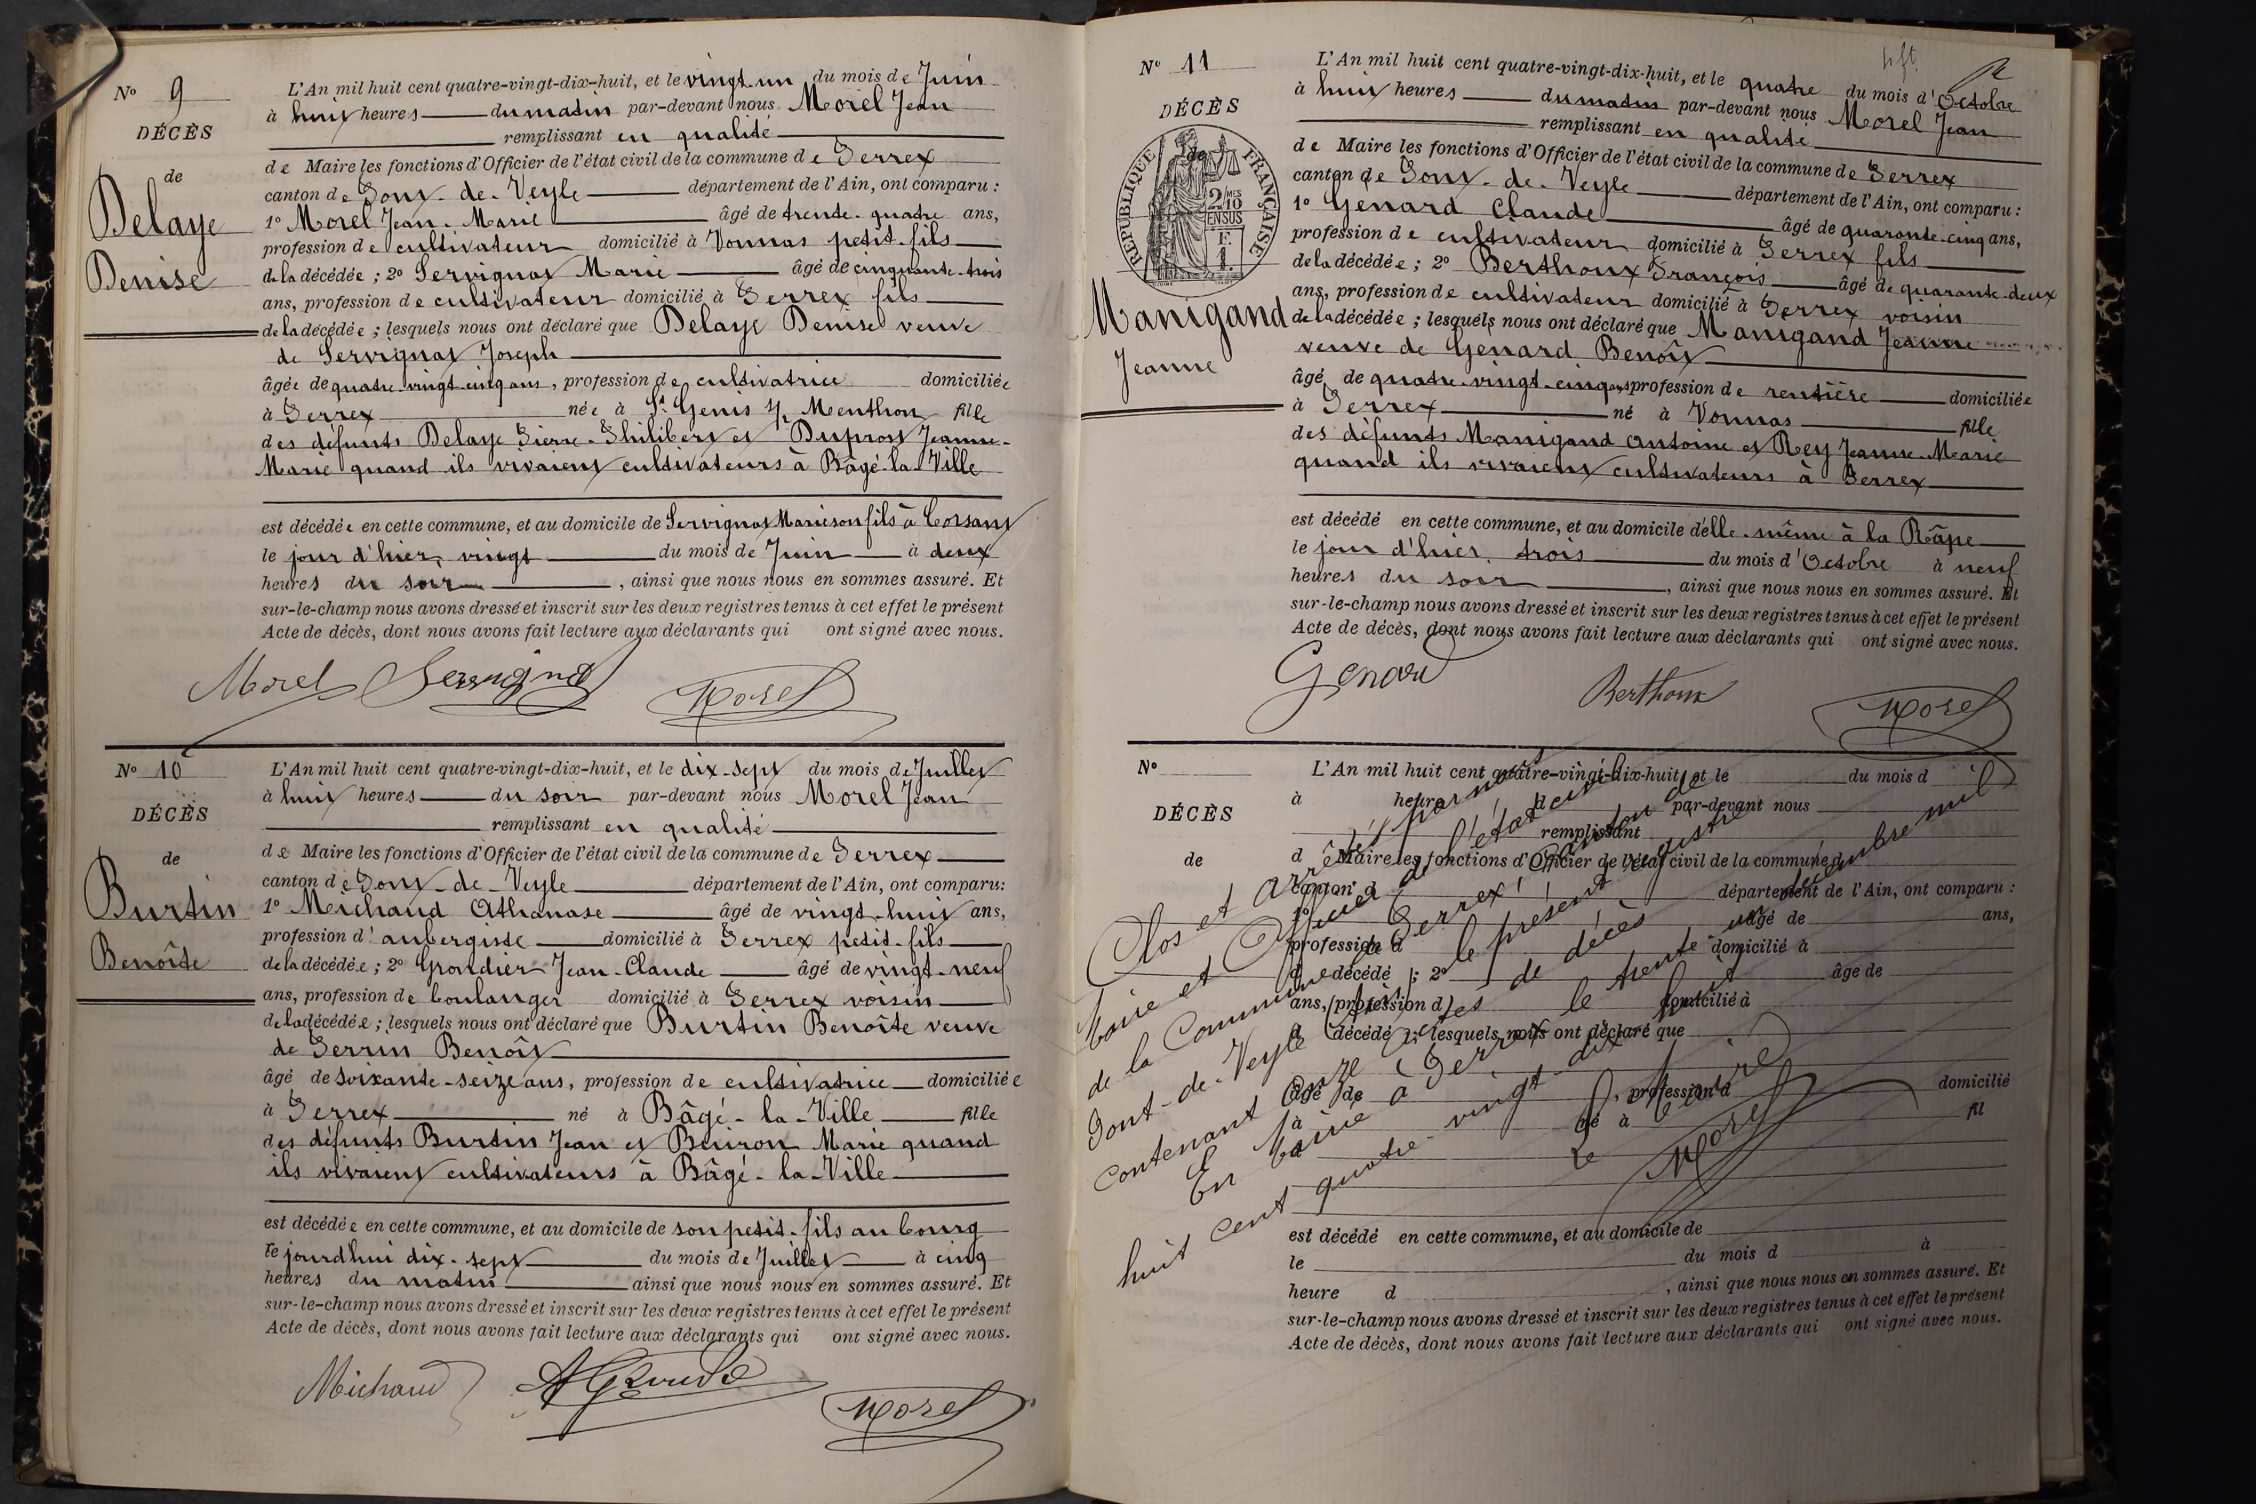 N° 9
DÉCÈS
de
Delaye
Denise
L'An mil huit cent quatre-vingt-dix-huit, et le vingt-un du mois de Juin
à huit heures du matin par-devant nous Morel Jean
remplissant en qualité
de Maire les fonctions d'Officier de l'état civil de la commune de Perrex
canton de Pont-de-Veyle département de l'Ain, ont comparu :
1° Morel Jean-Marie âgé de trente-quatre ans,
profession de cultivateur domicilié à Vonnas petit-fils
de la décédée ; 2° Servignat Marie âgé de cinquante-trois
ans, profession de cultivateur domicilié à Perrex fils
de la décédée ; lesquels nous ont déclaré que Delaye Denise veuve
de Servignat Joseph
âgée de quatre-vingt-cinq ans, profession de cultivatrice domiciliée
à Perrex née à St Genis s/ Menthon fille
des défunts Delaye Pierre-Philibert et Duprost Jeanne-
Marie quand ils vivaient cultivateurs à Bâgé-la-Ville
est décédée en cette commune, et au domicile de Servignat Marie son fils à Corsant
le jour d'hier, vingt du mois de Juin à deux
heures du soir, ainsi que nous nous en sommes assuré. Et
sur-le-champ nous avons dressé et inscrit sur les deux registres tenus à cet effet le présent
Acte de décès, dont nous avons fait lecture aux déclarants qui ont signé avec nous.
Morel Servignat Morel
N° 10
DÉCÈS
de
Burtin
Benoîte
L'An mil huit cent quatre-vingt-dix-huit, et le dix-sept du mois de Juillet
à huit heures du soir par-devant nous Morel Jean
remplissant en qualité
de Maire les fonctions d'Officier de l'état civil de la commune de Perrex
canton de Pont-de-Veyle département de l'Ain, ont comparu :
1° Michaud Athanase âgé de vingt-huit ans,
profession d'aubergiste domicilié à Perrex petit-fils
de la décédée ; 2° Grondier Jean-Claude âgé de vingt-neuf
ans, profession de boulanger domicilié à Perrex voisin
de la décédée ; lesquels nous ont déclaré que Burtin Benoîte veuve
de Perrin Benoît
âgé de soixante-seize ans, profession de cultivatrice domiciliée
à Perrex né à Bâgé-la-Ville fille
des défunts Burtin Jean et Beuiron Marie quand
ils vivaient cultivateurs à Bâgé-la-Ville
est décédée en cette commune, et au domicile de son petit-fils au bourg
le jourd'hui dix-sept du mois de Juillet à cinq
heures du matin ainsi que nous nous en sommes assuré. Et
sur-le-champ nous avons dressé et inscrit sur les deux registres tenus à cet effet le présent
Acte de décès, dont nous avons fait lecture aux déclarants qui ont signé avec nous.
Michaud Morel
N° 11
DÉCÈS
de
RÉPUBLIQUE FRANÇAISE
2 MES 10
EN SUS
Manigand
Jeanne
L'An mil huit cent quatre-vingt-dix-huit, et le quatre du mois d'Octobre
à huit heures du matin par-devant nous Morel Jean
remplissant en qualité
de Maire les fonctions d'Officier de l'état civil de la commune de Perrex
canton de Pont-de-Veyle département de l'Ain, ont comparu :
1° Genard Claude âgé de quarante-cinq ans,
profession de cultivateur domicilié à Perrex fils
de la décédée ; 2° Berthoux François âgé de quarante-deux
ans, profession de cultivateur domicilié à Perrex voisin
de la décédée ; lesquels nous ont déclaré que Manigand Jeanne
veuve de Genard Benoît
âgé de quatre-vingt-cinq ans profession de rentière domiciliée
à Perrex né à Vonnas fille
des défunts Manigand Antoine et Rey Jeanne-Marie
quand ils vivaient cultivateurs à Perrex
est décédé en cette commune, et au domicile d'elle-même à la Râpe
le jour d'hier, trois du mois d'Octobre à neuf
heures du soir, ainsi que nous nous en sommes assuré. Et
sur-le-champ nous avons dressé et inscrit sur les deux registres tenus à cet effet le présent
Acte de décès, dont nous avons fait lecture aux déclarants qui ont signé avec nous.
Genard Berthoux Morel
N°
DÉCÈS
de
L'An mil huit cent quatre-vingt-dix-huit, et le du mois d
à heure d par-devant nous
remplissant
d Maire les fonctions d'Officier de l'état civil de la commune d
canton d département de l'Ain, ont comparu :
1° âgé de ans,
profession d domicilié à
d décédé ; 2° âgé de
ans, profession d domicilié à
d décédé ; lesquels nous ont déclaré que
âgé de , profession d domicilié
à né à fil
d
est décédé en cette commune, et au domicile de
le du mois d à
heure d , ainsi que nous nous en sommes assuré. Et
sur-le-champ nous avons dressé et inscrit sur les deux registres tenus à cet effet le présent
Acte de décès, dont nous avons fait lecture aux déclarants qui ont signé avec nous.
Clos et arrêté par nous
Maire et Officier de l'état civil
de la Commune de Perrex, canton de
Pont-de-Veyle (Ain) le présent registre
contenant onze actes de décès
En Mairie à Perrex le trente un décembre mil
huit cent quatre-vingt-dix huit
Le Maire
Morel